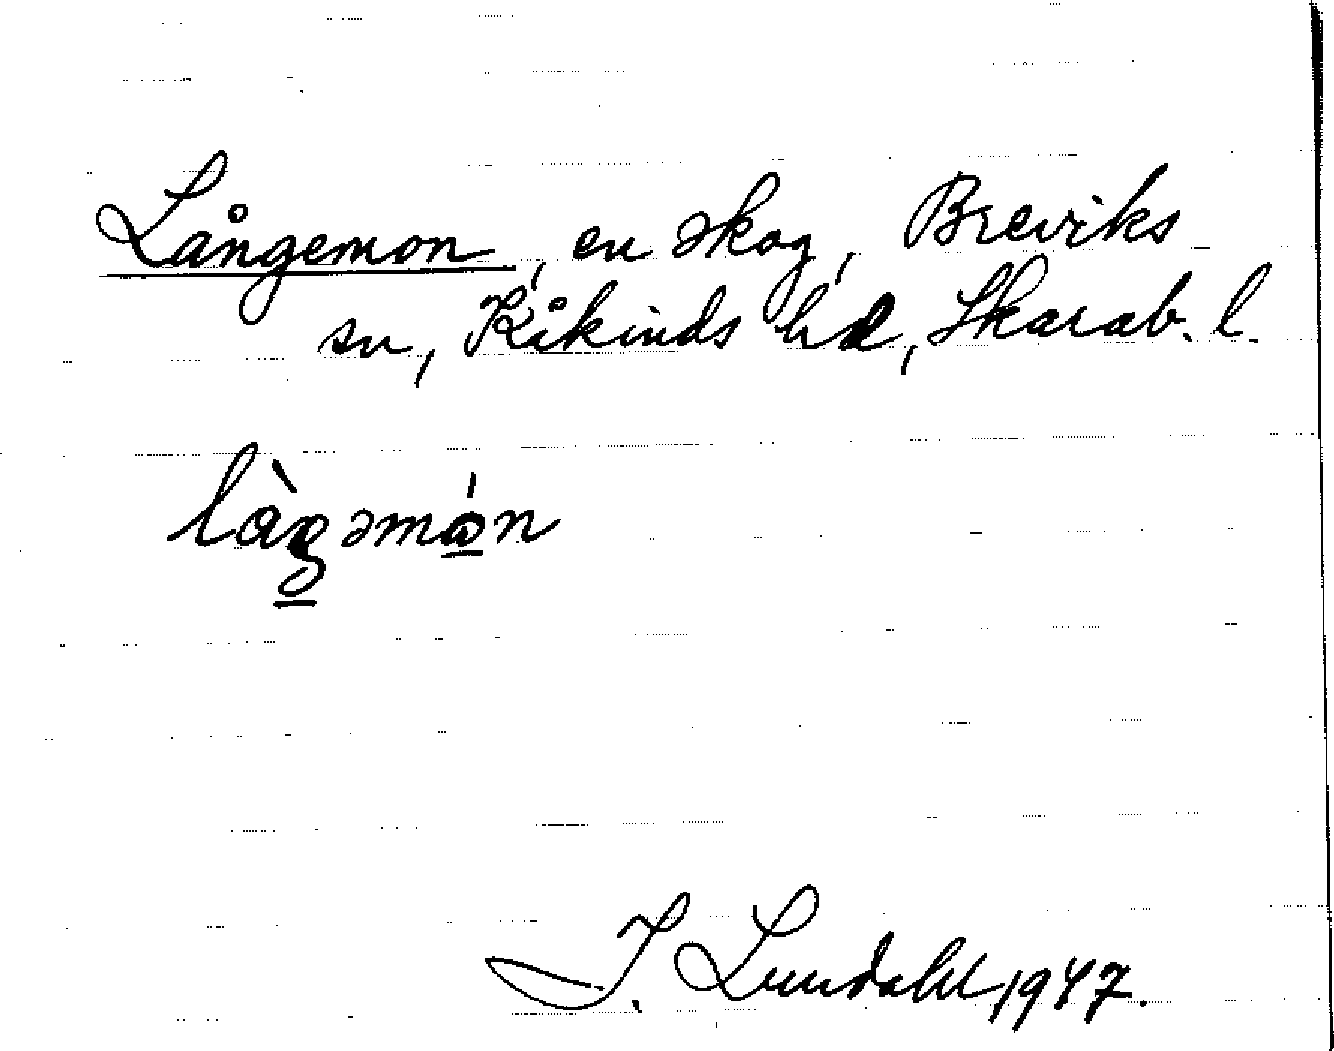 Långemon, en skog, Breviks
sn, Kåkinds hd, Skarab. l.
làgəmón
I. Lundahl 1947.